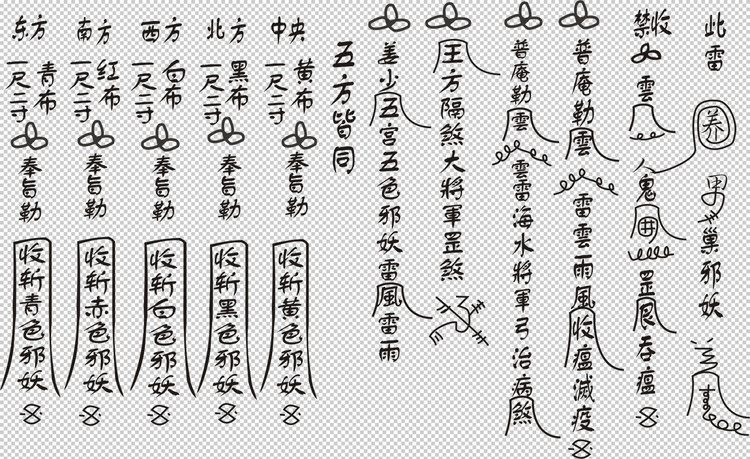 此雷
男巢邪妖
禁收
雲人鬼
罡
吞瘟
普庵勒雲
雷雲雨風收瘟滅疫
普庵勒雲
雲雷海水將軍弓治病煞
王方隔煞大將軍罡煞
姜少五宫五色邪妖雷風雷雨
五方皆同
中央
黄布
一尺二寸
奉旨勒
收斩黄色邪妖
北方
黑布
一尺二寸
奉旨勒
收斩黑色邪妖
西方
白布
一尺二寸
奉旨勒
收斩白色邪妖
南方
红布
一尺二寸
奉旨勒
收斩赤色邪妖
东方
青布
一尺二寸
奉旨勒
收斩青色邪妖